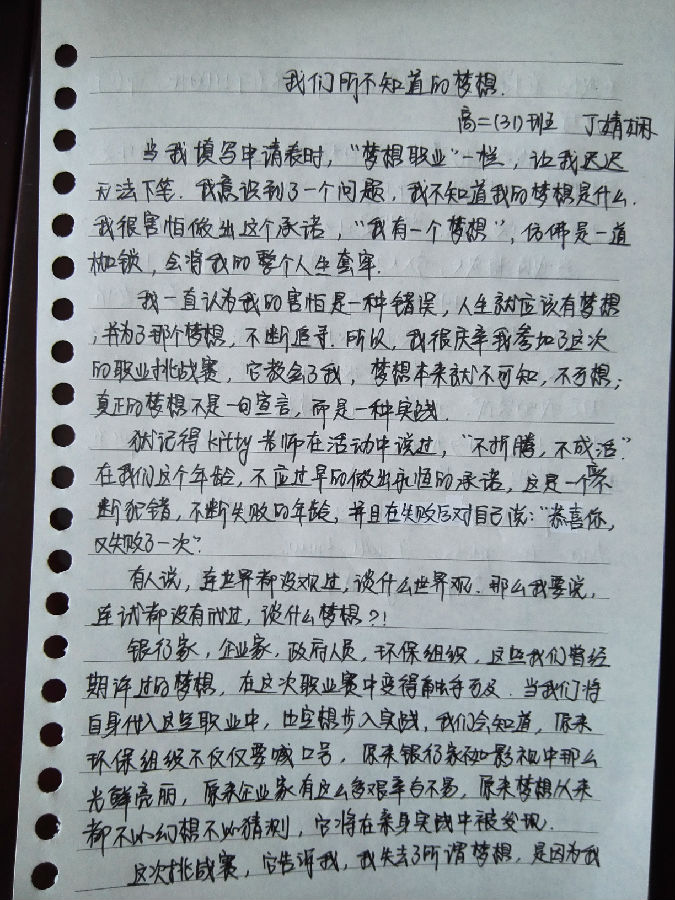 我们所不知道的梦想.
高二(31)班 丁婧娴
当我填写申请表时，“梦想职业”一栏，让我迟迟
无法下笔. 我意识到了一个问题，我不知道我的梦想是什么.
我很害怕做出这个承诺，“我有一个梦想”，仿佛是一道
枷锁，会将我的整个人生套牢.
我一直认为我的害怕是一种错误，人生就应该有梦想
，并为了那个梦想，不断追寻. 所以，我很庆幸我参加了这次
的职业挑战赛，它教会了我，梦想本来就不可知，不可想；
真正的梦想不是一句宣言，而是一种实践.
犹记得kitty老师在活动中说过，“不折腾，不成活”.
在我们这个年龄，不应过早的做出永恒的承诺，这是一个不
断犯错，不断失败的年龄，并且在失败后对自己说：“恭喜你，
又失败了一次”.
有人说，连世界都没观过，谈什么世界观. 那么我要说，
连试都没有试过，谈什么梦想？!
银行家，企业家，政府人员，环保组织，这些我们曾经
期许过的梦想，在这次职业赛中变得触手可及. 当我们将
自身代入这些职业中，由空想步入实践，我们会知道，原来
环保组织不仅仅要喊口号，原来银行家不如影视中那么
光鲜亮丽，原来企业家有这么多艰辛与不易，原来梦想从来
都不必幻想不必猜测，它将在亲身实践中被发现.
这次挑战赛，它告诉我，我失去了所谓梦想，是因为我